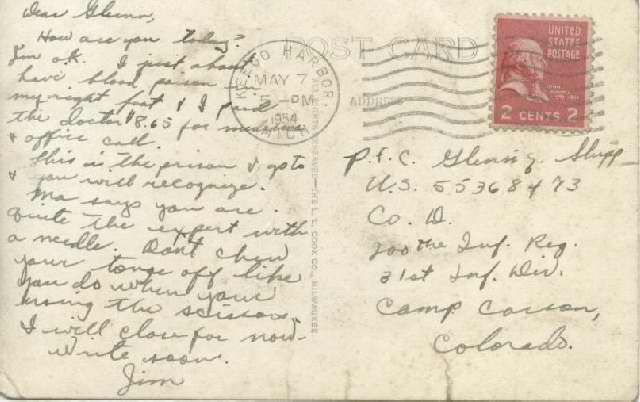 Dear Glenn,
How are you today?
I'm o.k. I just about
have blood poison in
my right foot & I paid
the doctor $8.65 for
& office call.
This is the prison &
& you will recognize.
Ma says you are
quite the expert with
a needle. Don't chew
your tonge off like
you do when your
using the scissors.
I will close for now.
Write soon.
Jim
POST CARD
HARBOR
MAY 7
PM
1954
MICH.
ADDRESS
UNITED
STATES
POSTAGE
2 CENTS 2
L. L. COOK CO., MILWAUKEE
P.F.C. Glenn Shipp
U.S. 55368473
Co. D.
200the Inf. Reg.
31st Inf. Div.
Camp Carson,
Colorado.